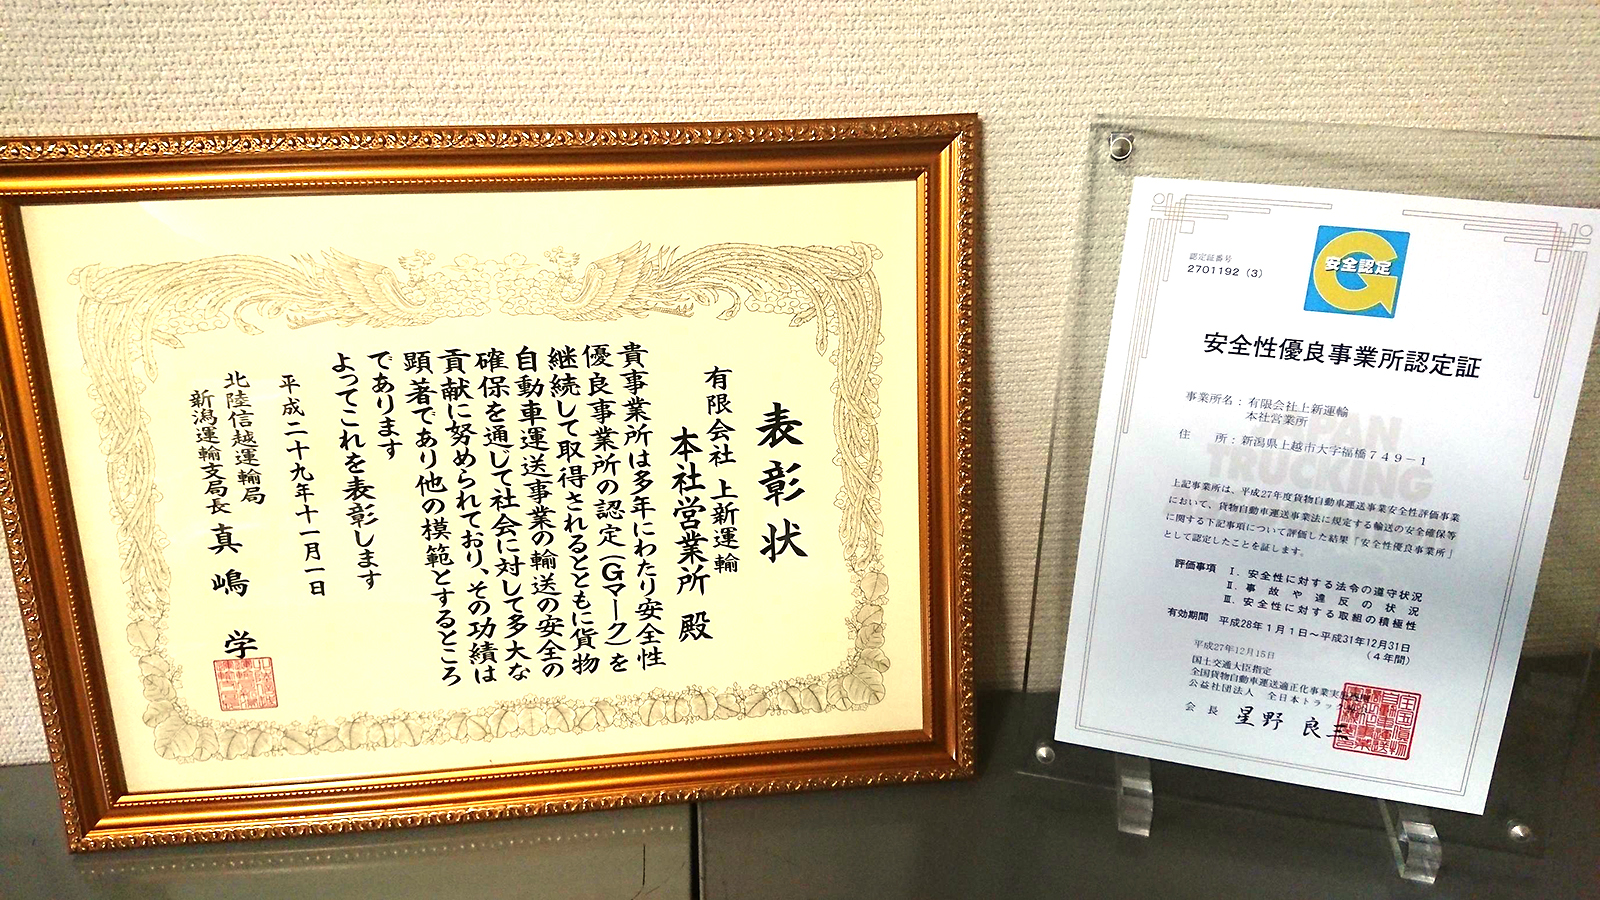 表彰状
有限会社 上新運輸
本社営業所 殿
貴事業所は多年にわたり安全性
優良事業所の認定(Gマーク)を
継続して取得されるとともに貨物
自動車運送事業の輸送の安全の
確保を通じて社会に対して多大な
貢献に努められており、その功績は
顕著であり他の模範とするところ
であります
よってこれを表彰します
平成二十九年十一月一日
北陸信越運輸局
新潟運輸支局長 真嶋 学
認定証番号
2701192 (3)
安全認定
安全性優良事業所認定証
事業所名：有限会社上新運輸
本社営業所
住 所：新潟県上越市大字福橋749－1
JAPAN
TRUCKING
上記事業所は、平成27年度貨物自動車運送事業安全性評価事業
において、貨物自動車運送事業法に規定する輸送の安全確保等
に関する下記事項について評価した結果「安全性優良事業所」
として認定したことを証します。
評価事項 Ⅰ．安全性に対する法令の遵守状況
Ⅱ．事故や違反の状況
Ⅲ．安全性に対する取組の積極性
有効期間 平成28年1月1日～平成31年12月31日
(4年間)
平成27年12月15日
国土交通大臣指定
全国貨物自動車運送適正化事業実施
公益社団法人 全日本トラック
会長 星野 良三